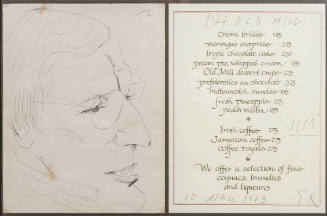 THE OLD MILL
Crème brûlée 195
meringue surprise 225
triple chocolate cake 250
pecan pie, whipped cream 195
Old Mill dessert crepe 225
profiteroles au chocolat 325
butterscotch sundae 195
fresh pineapple 225
peach melba 195
Irish coffee 275
"JIM"
Jamaican coffee 275
coffee royale 275
We offer a selection of fine
cognacs, brandies
and liqueurs
10 APRIL 1983